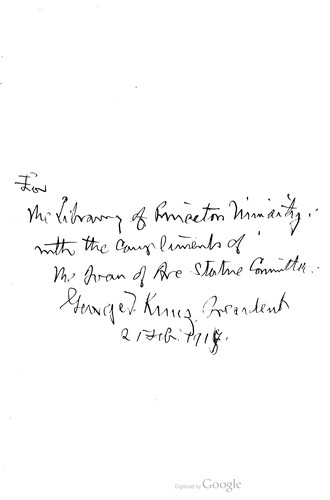 For
The Library of Princeton University.
with the compliments of
The Joan of Arc Statue Committee.
George F. Kunz, President
21 Feb. 191
Digitized by Google